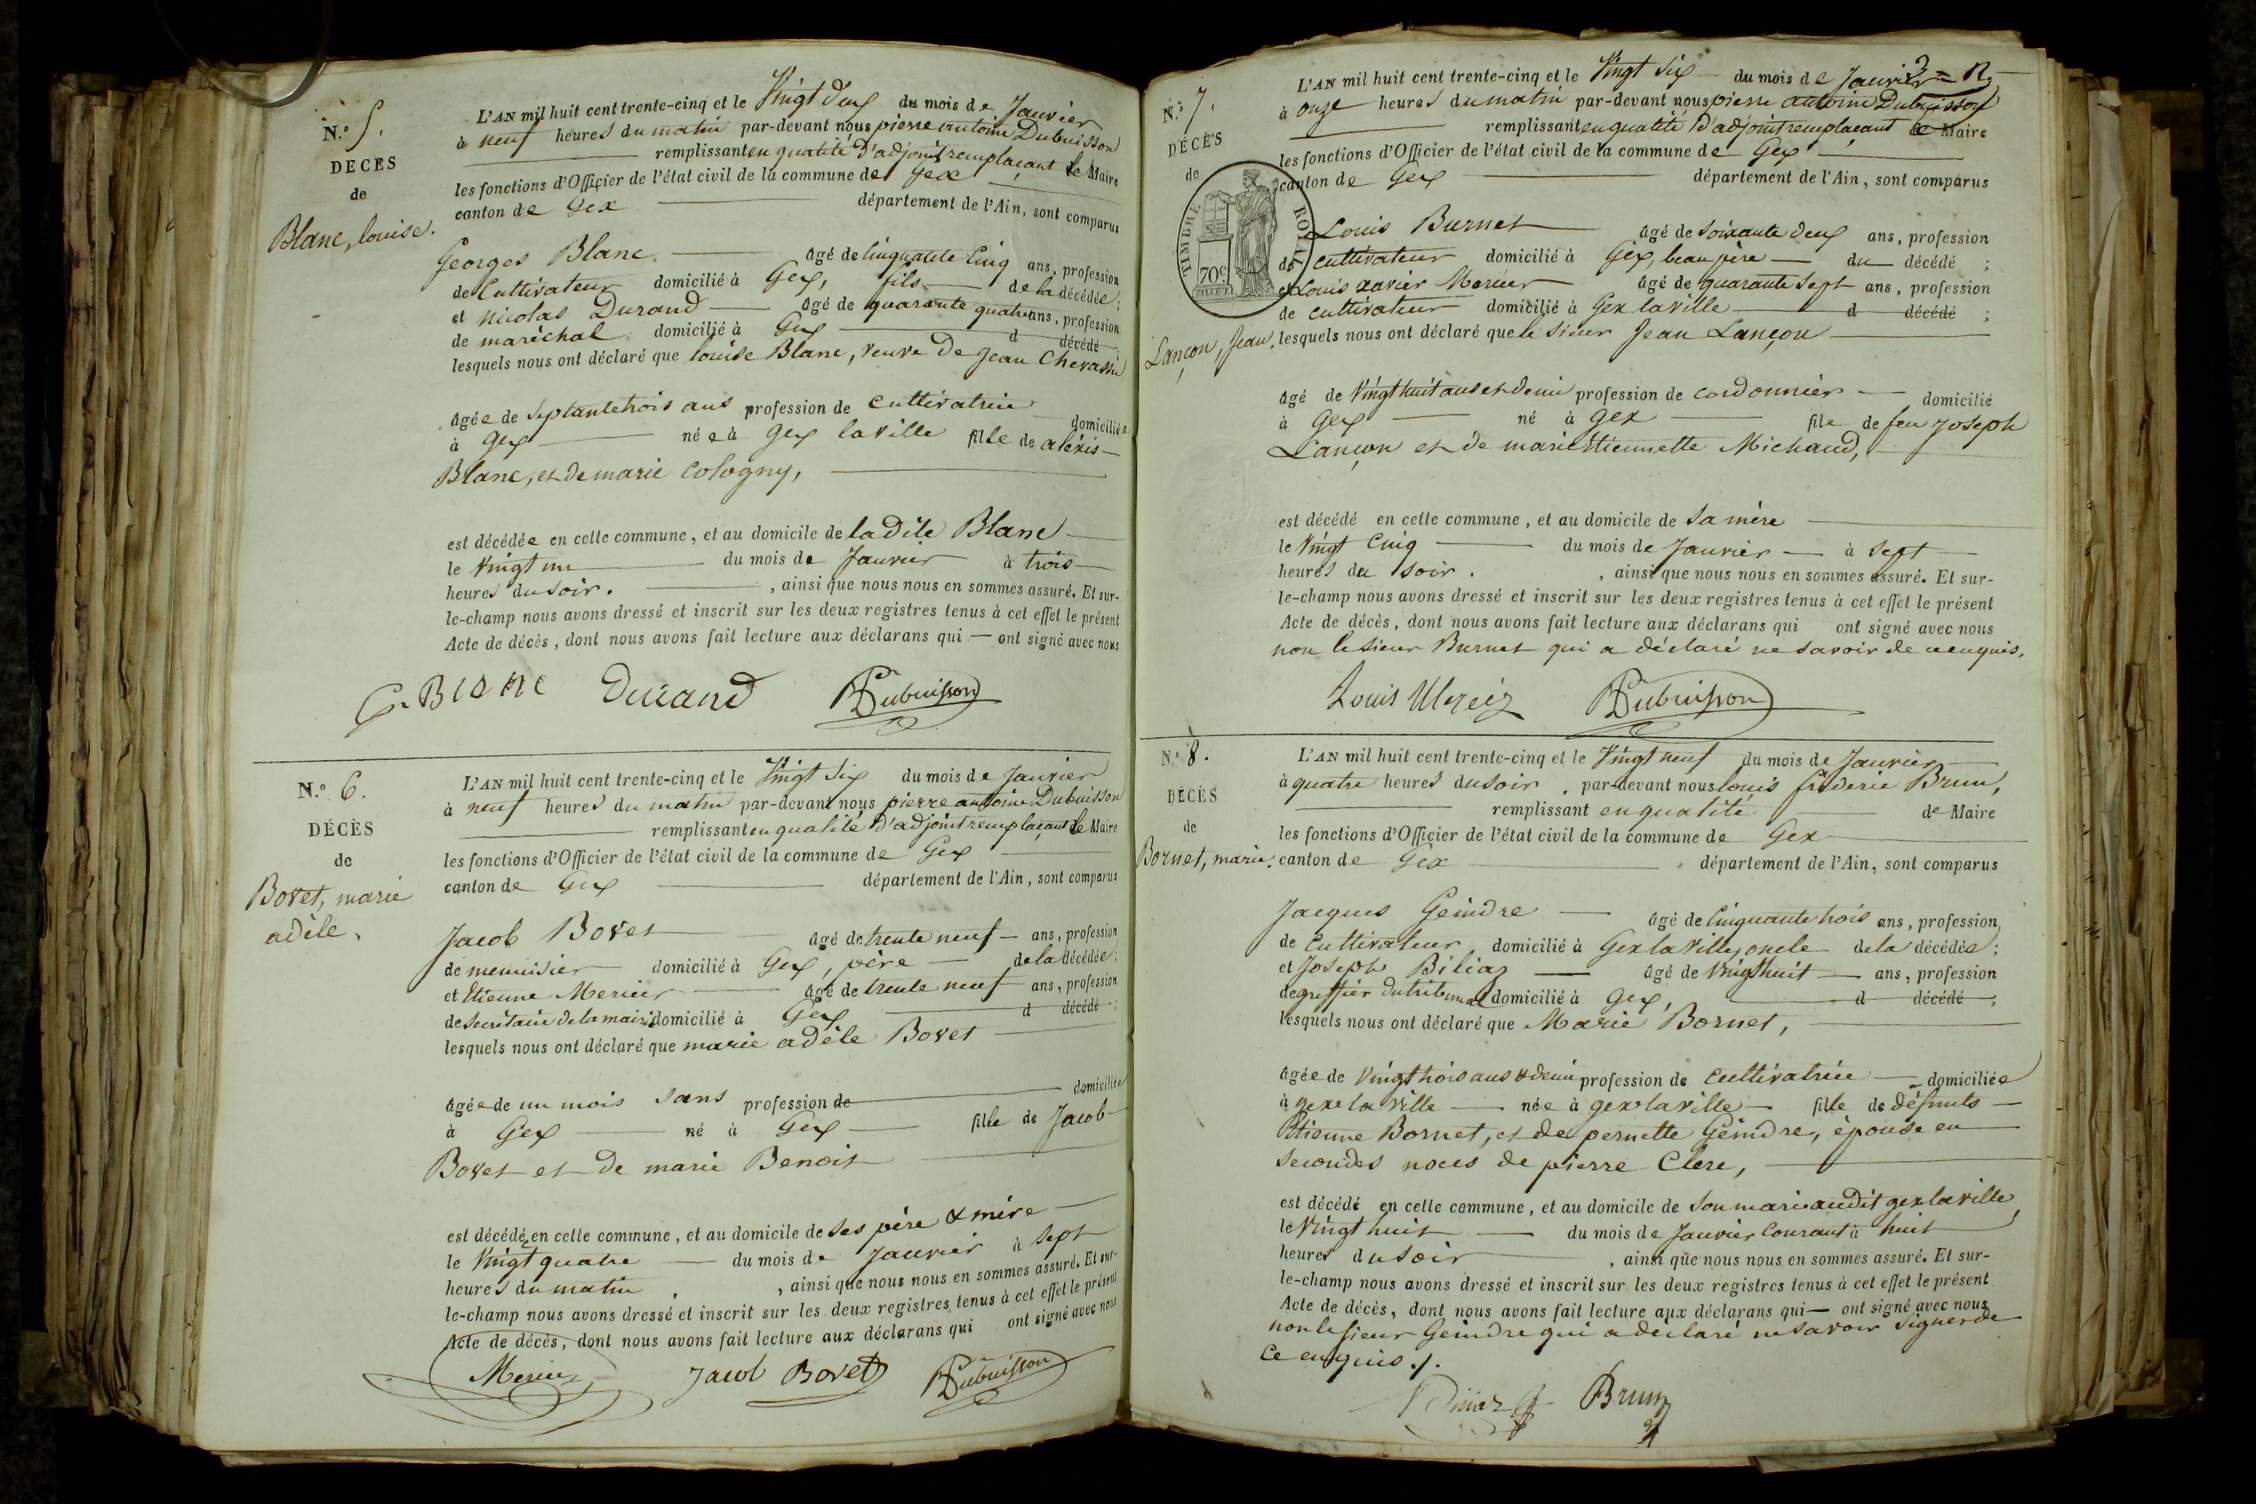 N.º 5.
DÉCÈS
de
Blanc, louise.
L'AN mil huit cent trente-cinq et le Vingt deux du mois de Janvier
à neuf heures du matin par-devant nous pierre antoine Dubuisson
remplissant en qualité d'adjoint remplaçant le Maire
les fonctions d'Officier de l'état civil de la commune de Gex
canton de Gex département de l'Ain, sont comparus
Georges Blanc âgé de Cinquante Cinq ans, profession
de Cultivateur domicilié à Gex, fils de la décédée;
et Nicolas Durand âgé de quarante quatre ans, profession
de maréchal domicilié à Gex d décédé;
lesquels nous ont déclaré que louise Blanc, veuve de Jean Chevassu
âgée de septante trois ans profession de cultivatrice domiciliée
à Gex née à Gex la Ville fille de aléxis
Blanc, et de marie Cologny,
est décédée en cette commune, et au domicile de la dite Blanc
le Vingt un du mois de Janvier à trois
heures du soir. , ainsi que nous nous en sommes assuré. Et sur-
le-champ nous avons dressé et inscrit sur les deux registres tenus à cet effet le présent
Acte de décès, dont nous avons fait lecture aux déclarans qui ont signé avec nous
G. Blanc Durand Dubuisson
N.º 6.
DÉCÈS
de
Bovet, marie
adèle.
L'AN mil huit cent trente-cinq et le Vingt Six du mois de Janvier
à neuf heures du matin par-devant nous pierre antoine Dubuisson
remplissant en qualité d'adjoint remplaçant le Maire
les fonctions d'Officier de l'état civil de la commune de Gex
canton de Gex département de l'Ain, sont comparus
Jacob Bovet âgé de trente neuf ans, profession
de menuisier domicilié à Gex, père de la décédée;
et Etienne Mercier âgé de trente neuf ans, profession
de Secrétaire de la mairie domicilié à Gex d décédé;
lesquels nous ont déclaré que marie adèle Bovet
âgée de un mois sans profession de domiciliée
à Gex né à Gex fille de Jacob
Bovet et de marie Benoit
est décédée en cette commune, et au domicile de ses père & mère
le Vingt quatre du mois de Janvier à sept
heures du matin , ainsi que nous nous en sommes assuré. Et sur-
le-champ nous avons dressé et inscrit sur les deux registres tenus à cet effet le présent
Acte de décès, dont nous avons fait lecture aux déclarans qui ont signé avec nous
Mercier Jacob Bovet Dubuisson
N.º 7.
DÉCÈS
de
TIMBRE ROYAL
70c
Lançon, Jean.
L'AN mil huit cent trente-cinq et le Vingt Six du mois de Janvier
à onze heures du matin par-devant nous pierre antoine Dubuisson
remplissant en qualité d'adjoint remplaçant le Maire
les fonctions d'Officier de l'état civil de la commune de Gex
canton de Gex département de l'Ain, sont comparus
Louis Burnet âgé de soixante deux ans, profession
de cultivateur domicilié à Gex, beau père du décédé;
et Louis xavier Mercier âgé de quarante sept ans, profession
de cultivateur domicilié à Gex la ville d décédé;
lesquels nous ont déclaré que le sieur Jean Lançon
âgé de Vingt huit ans et demi profession de cordonnier domicilié
à Gex né à Gex fils de feu Joseph
Lançon et de marie Etiennette Michaud,
est décédé en cette commune, et au domicile de sa mère
le Vingt Cinq du mois de Janvier à sept
heures du soir. , ainsi que nous nous en sommes assuré. Et sur-
le-champ nous avons dressé et inscrit sur les deux registres tenus à cet effet le présent
Acte de décès, dont nous avons fait lecture aux déclarans qui ont signé avec nous
non le sieur Burnet qui a déclaré ne savoir de ce enquis.
Louis Dubuisson
N.º 8.
DÉCÈS
de
Bornet, marie.
L'AN mil huit cent trente-cinq et le Vingt neuf du mois de Janvier
à quatre heures du soir, par-devant nous louis fréderic Brun,
remplissant en qualité de Maire
les fonctions d'Officier de l'état civil de la commune de Gex
canton de Gex département de l'Ain, sont comparus
Jacques Geindre âgé de Cinquante trois ans, profession
de Cultivateur domicilié à Gex la Ville, oncle de la décédée;
et Joseph Biliaz âgé de Vingt huit ans, profession
de greffier du tribunal domicilié à Gex, d décédé;
lesquels nous ont déclaré que Marie Bornet,
âgée de Vingt trois ans & demi profession de Cultivatrice domiciliée
à gex la ville née à gex la ville fille de défunts
Etienne Bornet, et de pernette Geindre, épouse en
secondes noces de pierre Clerc,
est décédé en cette commune, et au domicile de son mari audit gex la ville
le Vingt huit du mois de Janvier Courant à huit
heures du soir , ainsi que nous nous en sommes assuré. Et sur-
le-champ nous avons dressé et inscrit sur les deux registres tenus à cet effet le présent
Acte de décès, dont nous avons fait lecture aux déclarans qui ont signé avec nous
non le sieur Geindre qui a déclaré ne savoir signer de
ce enquis ./.
Brun